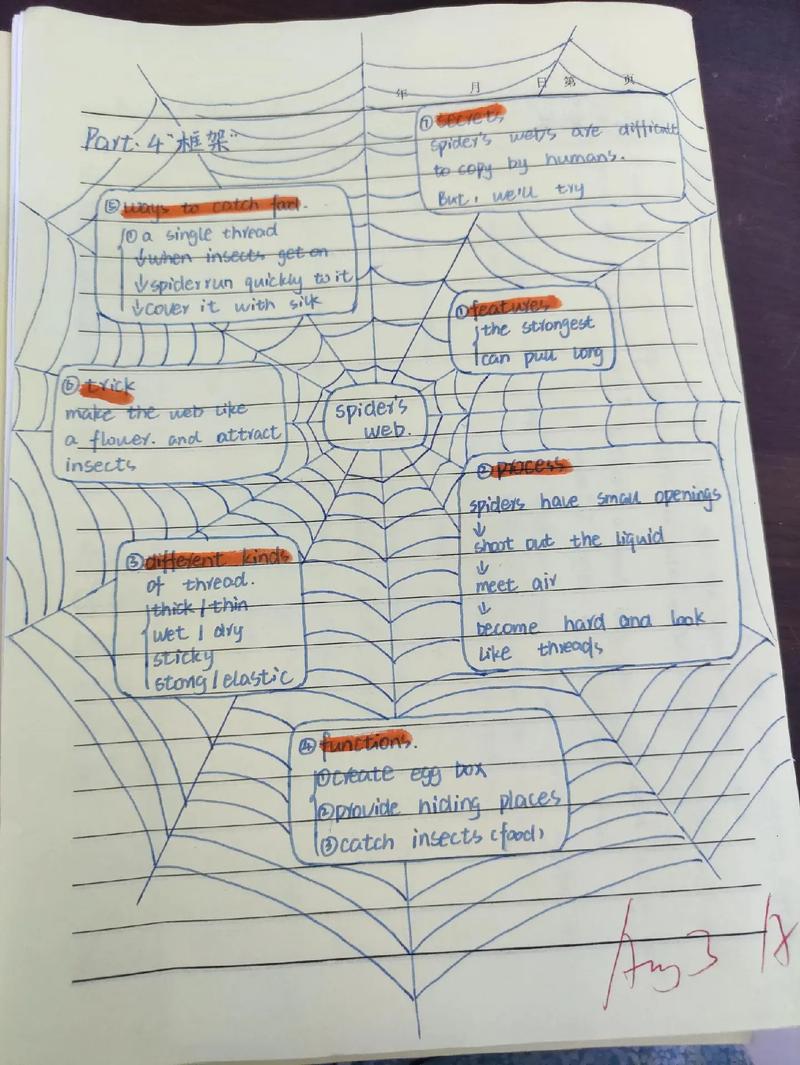 年 月 日 第 页
Part. 4 "框架"
⑦ secrets
spider's web's are difficult
to copy by humans.
But, we'll try
⑤ ways to catch
① a single thread
↓ when insects get on
↓ spider run quickly to it
↓ cover it with silk
① features
the strongest
can pull long
⑥ trick
make the web like
a flower. and attract
insects
spider's
web.
② process
spiders have small openings
↓
shoot out the liquid
↓
meet air
↓
become hard and look
like threads
③ different kinds
of thread.
thick / thin
wet / dry
sticky
stong / elastic
④ functions.
① create egg box
② provide hiding places
③ catch insects (food)